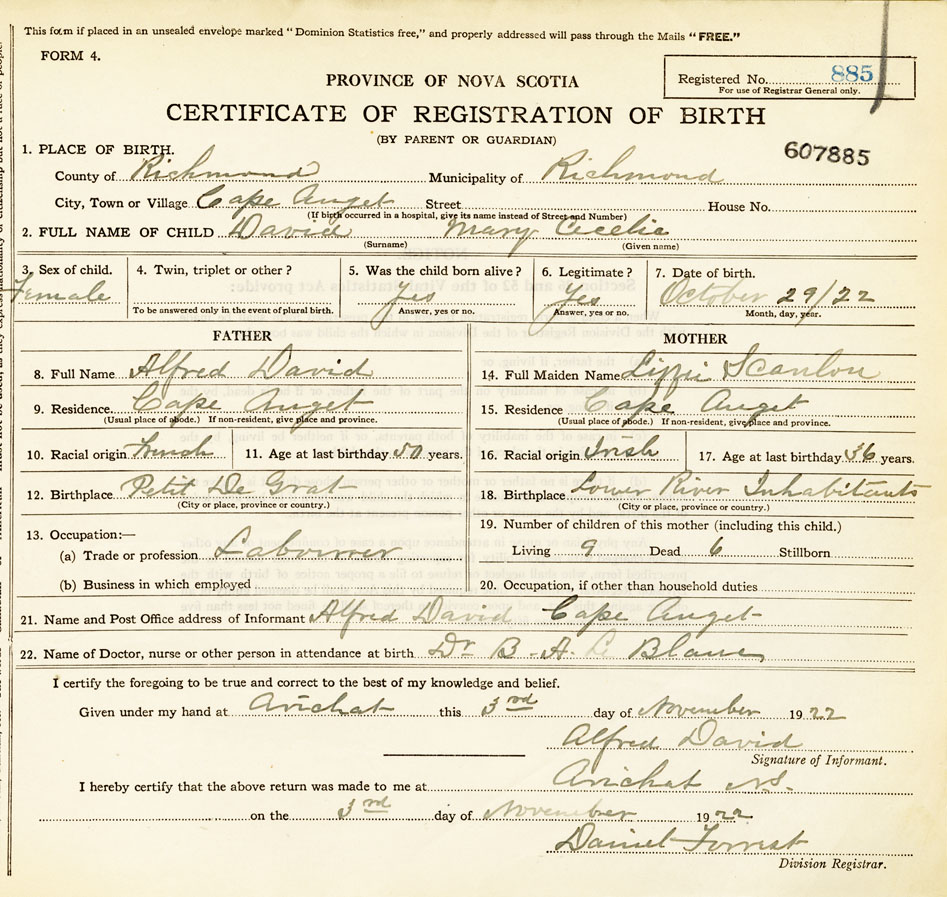 This form if placed in an unsealed envelope marked "Dominion Statistics free," and properly addressed will pass through the Mails "FREE."
FORM 4.
PROVINCE OF NOVA SCOTIA
Registered No. 885
For use of Registrar General only.
CERTIFICATE OF REGISTRATION OF BIRTH
(BY PARENT OR GUARDIAN)
607885
1. PLACE OF BIRTH.
County of Richmond Municipality of Richmond
City, Town or Village Cape Auget Street House No.
(If birth occurred in a hospital, give its name instead of Street and Number)
2. FULL NAME OF CHILD David Mary Cecelia
(Surname) (Given name)
3. Sex of child. 4. Twin, triplet or other? 5. Was the child born alive? 6. Legitimate? 7. Date of birth.
Female Yes Yes October 29/22
To be answered only in the event of plural birth. Answer, yes or no. Answer, yes or no. Month, day, year.
FATHER MOTHER
8. Full Name Alfred David 14. Full Maiden Name Lizzi Scanlon
9. Residence. Cape Auget 15. Residence Cape Auget
(Usual place of abode.) If non-resident, give place and province. (Usual place of abode.) If non-resident, give place and province.
10. Racial origin French 11. Age at last birthday 50 years. 16. Racial origin Irish 17. Age at last birthday 36 years.
12. Birthplace Petit De Grat 18. Birthplace Lower River Inhabitants
(City or place, province or country.) (City or place, province or country.)
13. Occupation:— 19. Number of children of this mother (including this child.)
(a) Trade or profession Labourer Living 9 Dead 6 Stillborn
(b) Business in which employed 20. Occupation, if other than household duties
21. Name and Post Office address of Informant Alfred David Cape Auget
22. Name of Doctor, nurse or other person in attendance at birth Dr B. A. Le Blanc
I certify the foregoing to be true and correct to the best of my knowledge and belief.
Given under my hand at Arichat this 3rd day of November 1922
Alfred David
Signature of Informant.
I hereby certify that the above return was made to me at Arichat N.S.
on the 3rd day of November 1922
Daniel Forrest
Division Registrar.